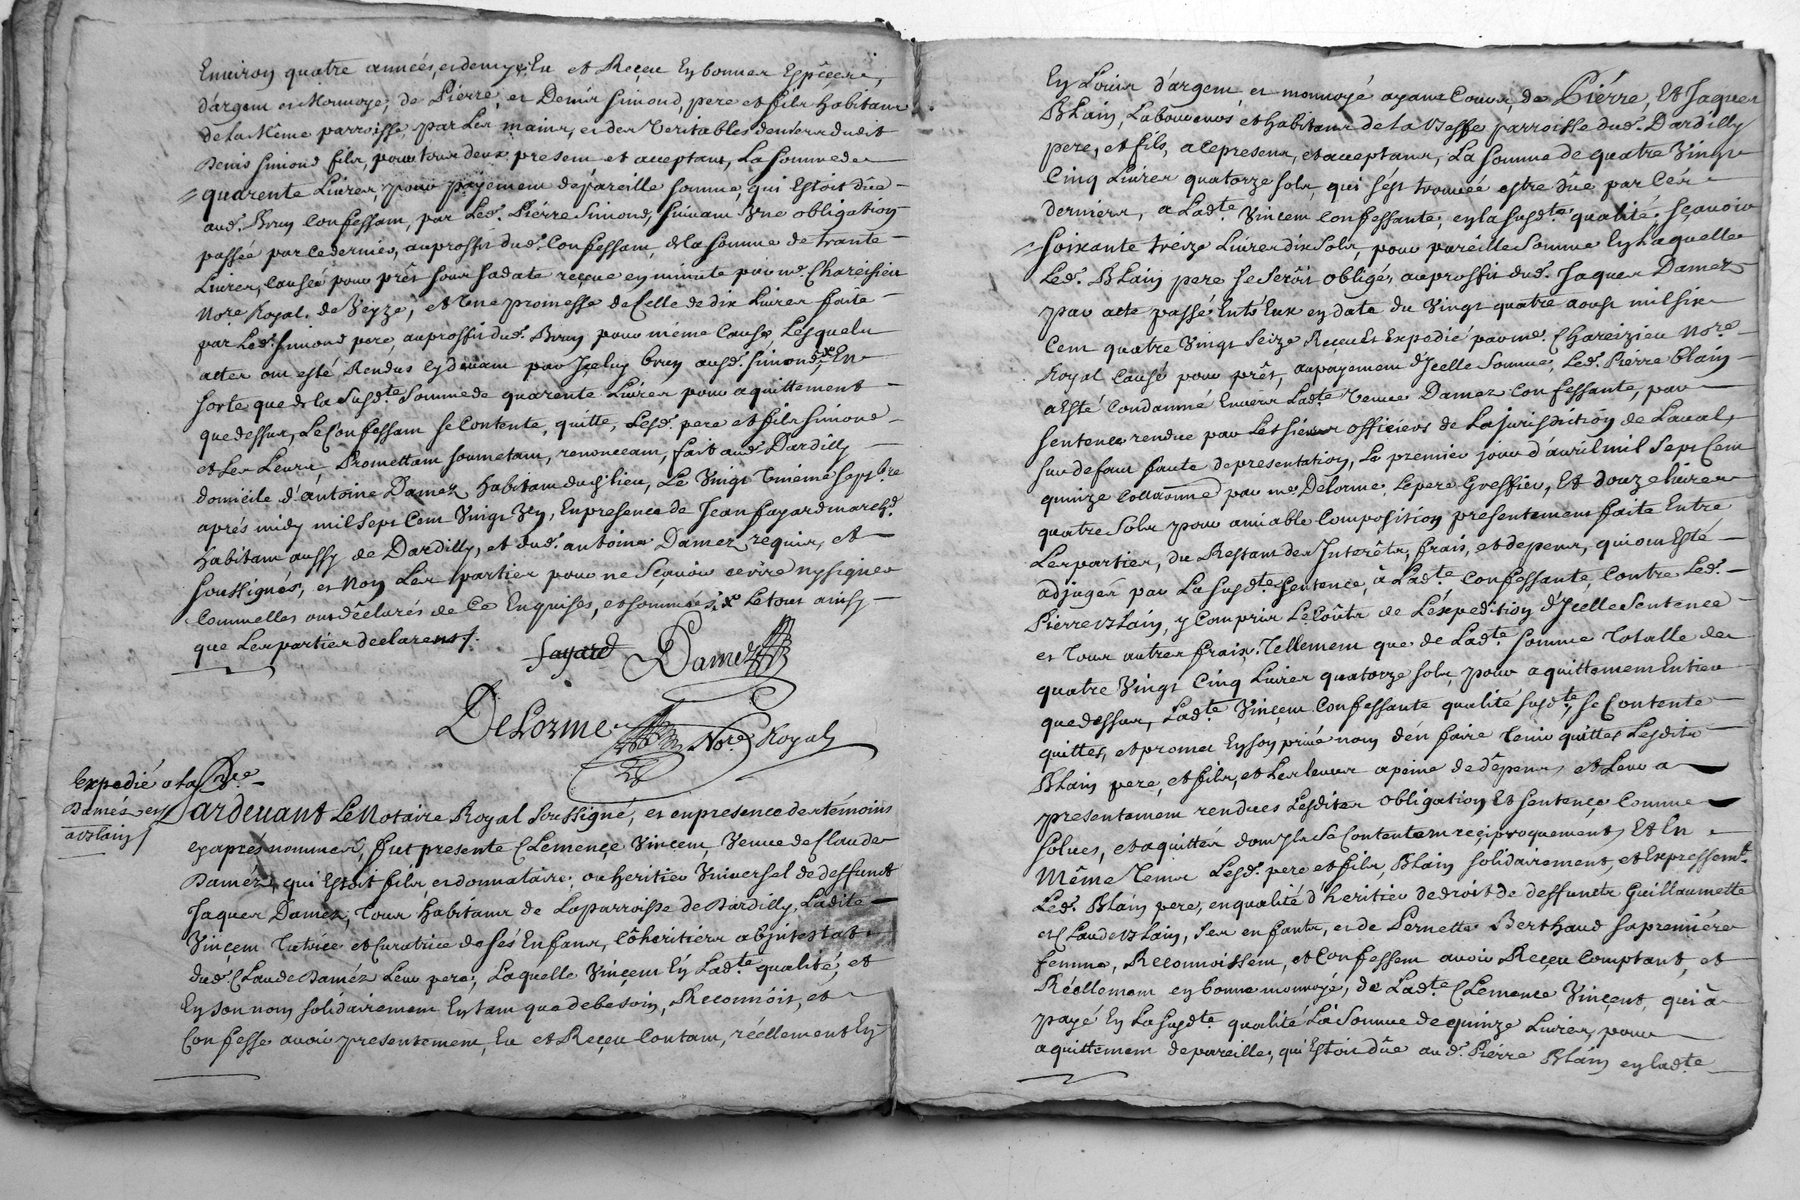 Environ quatre années, et demy, Eu et Reçeu En bonnes Espêçes,
d'argent et Monnoye, de Pierre, et Denis Simond, pere et fils habitans
de la Même parroisse par Les mains, et des Veritables deniers dudit
Denis Simond fils, pour tous deux present et acceptant, La somme de
quarente Livres, pour payement de pareille somme, qui Estoit düe
aud. Brun Confessant, par Led. Pierre Simond, suivant Une obligation
passée par ce dernier, au proffit dud. Confessant, de la somme de trante
Livres, Causée pour prêt sous sa date reçue en minute par me. Chareisieu
Nore Royal, de Veyze, et Une promesse de Celle de dix Livres faite
par Led. Simond pere, au proffit dud. Brun pour même Cause Lesquels
actes ont esté Rendus cy devant par Iceluy brun aud. Simond, En
sorte que de la Susdte Somme de quarente Livres pour aquittement
que dessus, Le Confessant se Contente, quitte, Lesd. pere et fils Simond
et Les Leurs, Promettant soumetant, renonceant, fait aud. Dardilly
domicile d'antoine Damez habitant dud. lieu, Le Vingt Unieme Septbre
aprés midy mil Sept Cent Vingt Un, En presence de Jean fayard march.
habitant aussy de Dardilly, et dud. antoine Damez requis, et
soussignés, et Non Les parties pour ne Sçavoir écrire ny signer
Comme Elles ont déclarés de Ce Enquises, et sommées, Le tout ainsy
que Les parties declarent.
fayard Damez
DeLorme Nore Royal
Expedié a la Vve
Damez et
a Blain
Pardevant Le Notaire Royal Soussigné, et en presence des témoins
cy aprés nommés, fut presente Clemençe Vinçent Veuve de Claude
Damez, qui Estoit fils et donnataire, ou heritier Universel de deffunct
Jaques Damez, Tous habitans de La parroisse de Dardilly, Ladite
Vinçent Tutrice et curatrice de sés Enfans, Côheritiers abjntestat
dud. Claude Daméz Leur pere, Laquelle Vinçent En Ladte qualité, et
En son nom solidairement En tant que de besoin, Reconnoit, et
Confesse avoir presentement, Eu et Reçeu Contant, réellement En
En Loüis d'argent et monnoyé ayant Cours, de Piérre, Et Jaques
Blain, Laboureurs et habitans de La Besse parroisse dud. Dardilly
pere, et fils, a ce presens, et acceptans, La Somme de quatre Vingt
Cinq Livres quatorze sols, qui sést trouvée estre düe par Cés
derniers, a Ladte Vinçent Confessante, en la susdte qualité, sçavoir
soixante tréize Livres dix Sols, pour pareille Somme En Laquelle
Led. Blain pere se Seroit obligé, au proffit dud. Jaques Damez
par acte passé Entr'Eux en date du Vingt quatre aoust mil six
Cent quatre Vingt Seize Reçeu Et Expedié par me. Chareizieu Nore
Royal Causé pour prêt, au payement d'Jcelle Somme, Led. Pierre blain
a Esté Condamné Envers Ladte Veuve Damez Confessante, par
sentence rendue par Les sieurs officiers de La jurisdition de Laval,
sur defaut faute de presentation, Le premier jour d'avril mil Sept Cent
quinze Collationné par me DeLorme Le pere Greffier, Et douze Livres
quatre Sols pour amiable Composition presentement faite Entre
Les parties, du Restant des Interêts, frais, et depens, qui ont Esté
adjugés par La susdte Sentence, à Ladte Confessante, Contre Led.
Pierre Blain, y Compris Le Coûts de L'éxpedition d'Jcelle Sentence
et Tous autres fraix. Tellement que de Ladte somme Totalle de
quatre Vingt Cinq Livres quatorze sols, pour aquittement Entier
que dessus, Ladte Vinçent Confessante qualité susdte, se Contente
quitte, et promet En son privé nom d'en faire Tenir quittes Lesdits
Blain pere, et fils, et Les leurs a peine de dépens, et Leur a
presentement rendues Lesdites obligation Et sentençe Comme
solües, et aquittés dont Jls Se Contentent reçiproquement, Et En
Même Tems Lesd. pere et fils, Blain solidairement, et Expressemt
Led. Blain pere, en qualité d'heritier de droit de deffuncts Guillaumette
et Claude Blain, ses enfants, et de Pernette Berthaud sa premiére
femme, Reconnoissent, et Confessent avoir Reçeu Comptant, et
Réellement en bonne monnoyé, de Ladte Clemence Vinçent, qui à
payé En La susdte qualité La Somme de quinze Livres, pour
aquittement de pareille, qui Estoit düe aud. Piérre Blain en ladte